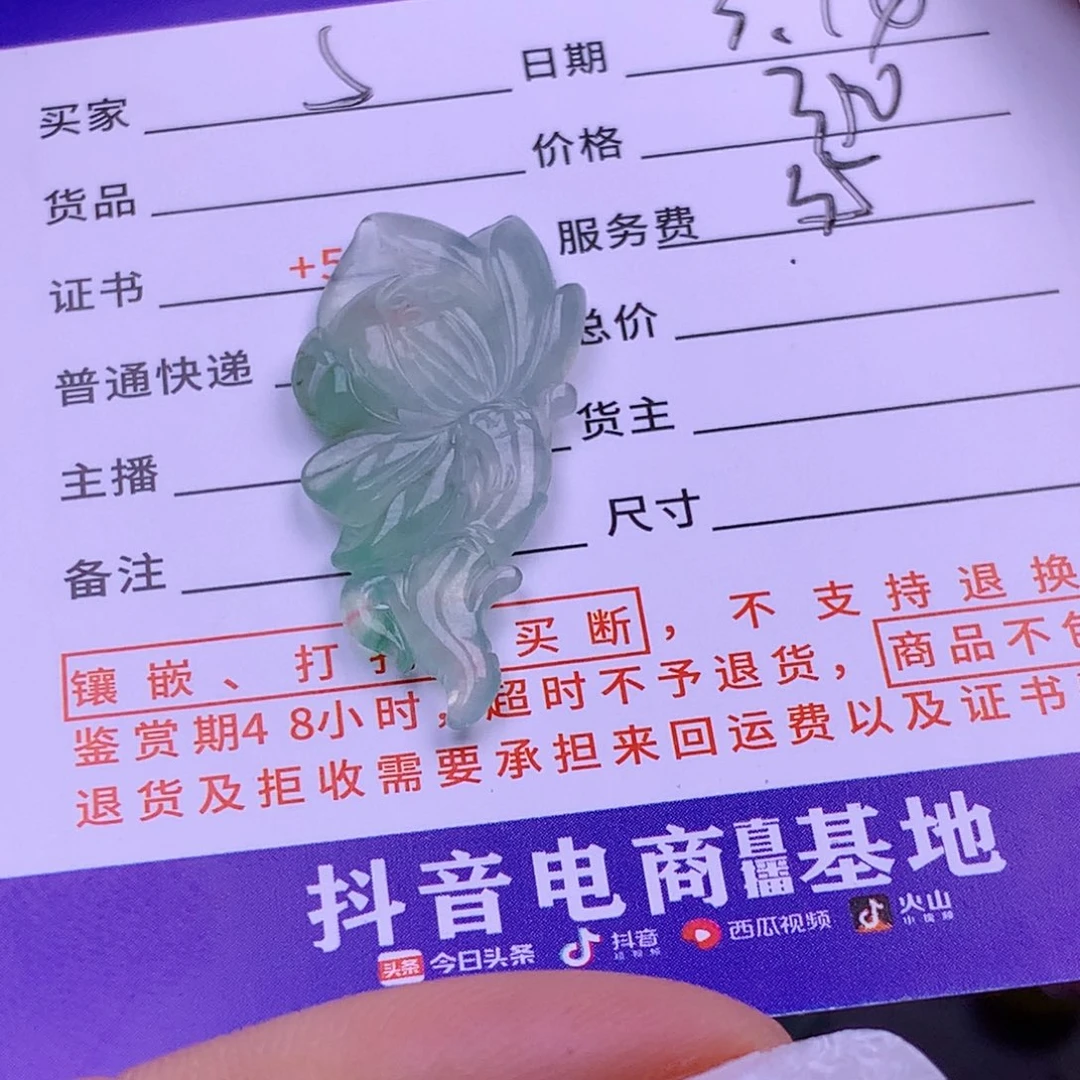 买家 日期
货品 价格
证书 +5 服务费
普通快递 总价
主播 货主
备注 尺寸
镶嵌、打 买断，不支持退换
鉴赏期48小时，超时不予退货，商品不包
退货及拒收需要承担来回运费以及证书
抖音电商直播基地
头条 今日头条 抖音 西瓜视频 火山